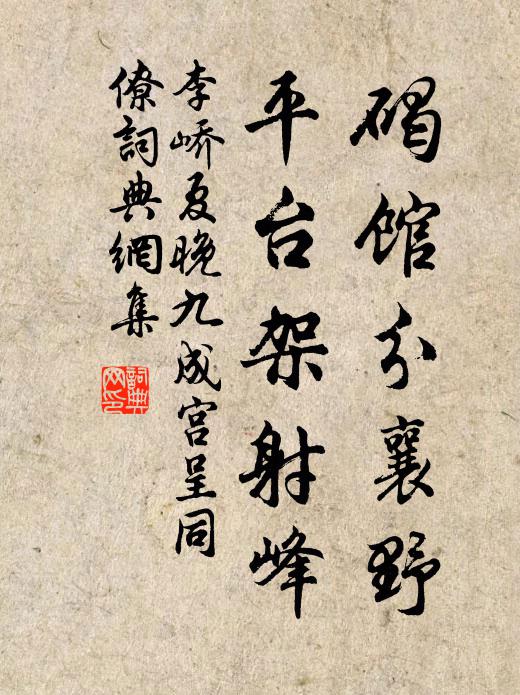 碣馆分襄野
平台架射峰
李峤夏晚九成宫呈同
僚詞典網集
詞典网印